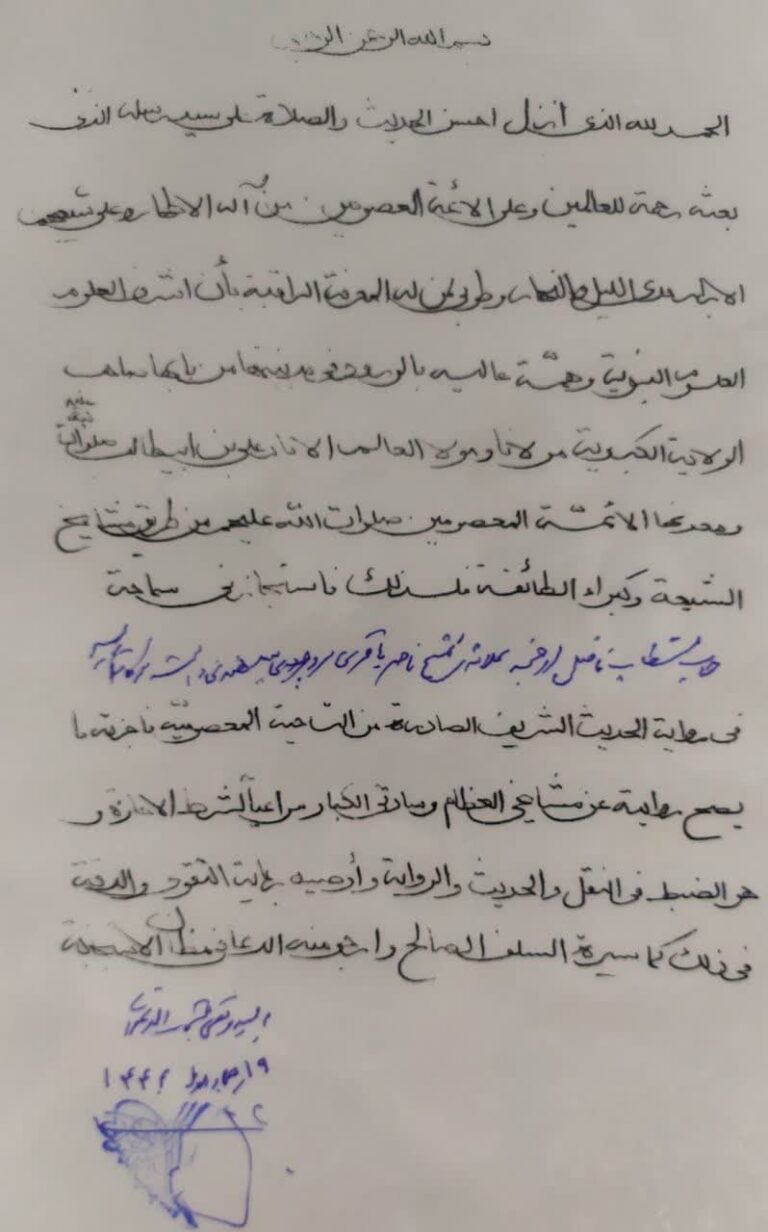 بسم الله الرحمن الرحيم
الحمد لله الذی انزل احسن الحديث والصلاة علی سيد رسله الذی
بعثه رحمة للعالمين وعلی الائمة المعصومين من آله الاطهار وعلی شيعتهم
الابرار مدی الليل والنهار وطوبی لمن له المعرفة الراقية بأن اشرف العلوم
العلوم النبوية وهمّة عالية بالورود فی مدينتها من بابها صاحب
الولاية الكبروية مولانا ومولا العالم الامام علی بن ابيطالب صلوات الله
عليه
ومعدنها الأئمّة المعصومين صلوات الله عليهم من طريق مشايخ
الشيعة وكبراء الطائفة فلذلك فاستجازنی سماحة
جناب مستطاب فاضل ارجمند علامه شيخ ناصر باقری
فی رواية الحديث الشريف الصادرة من الناحية المعصوميّة فأجزته ما
يصح روايته عن مشايخی العظام وسادتی الكبار مراعياً لشرط الاجازة و
هو الضبط فی النقل والحديث والرواية وأوصيه برعاية التقوی والدقة
فی ذلك كما سيرة السلف الصالح وارجو منه الدعا فی مظان الاستجابة
السيد
١٩ ١٤٤٢